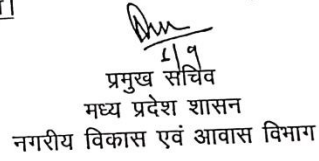 1/9
प्रमुख सचिव
मध्य प्रदेश शासन
नगरीय विकास एवं आवास विभाग